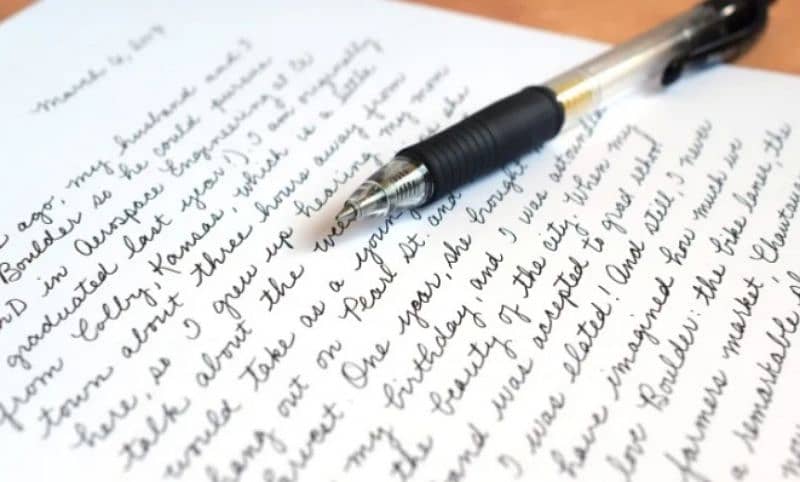 March 6,
ago, my husband and I
Boulder so he could pursue
in Aerospace Engineering at
graduated last year!) I am originally
from Colby, Kansas, which is a little
town about three hours away from
here, so I grew up hearing my mom
talk about the she
would take as a young
hang out on Pearl St. and
One year, she brought
my birthday, and I was
the beauty of the city. When my
and was accepted to grad school
I was elated! And still, I never
have imagined how much we
love Boulder: the bike lanes, the
farmers market
a remarkable